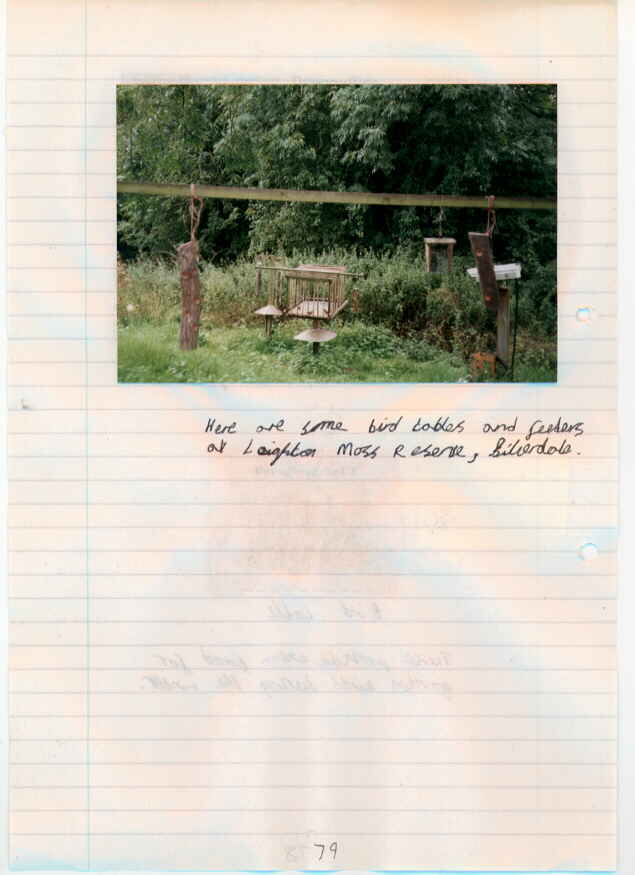 Here are some bird tables and feeders
at Leighton Moss Reserve, Silverdale.
79